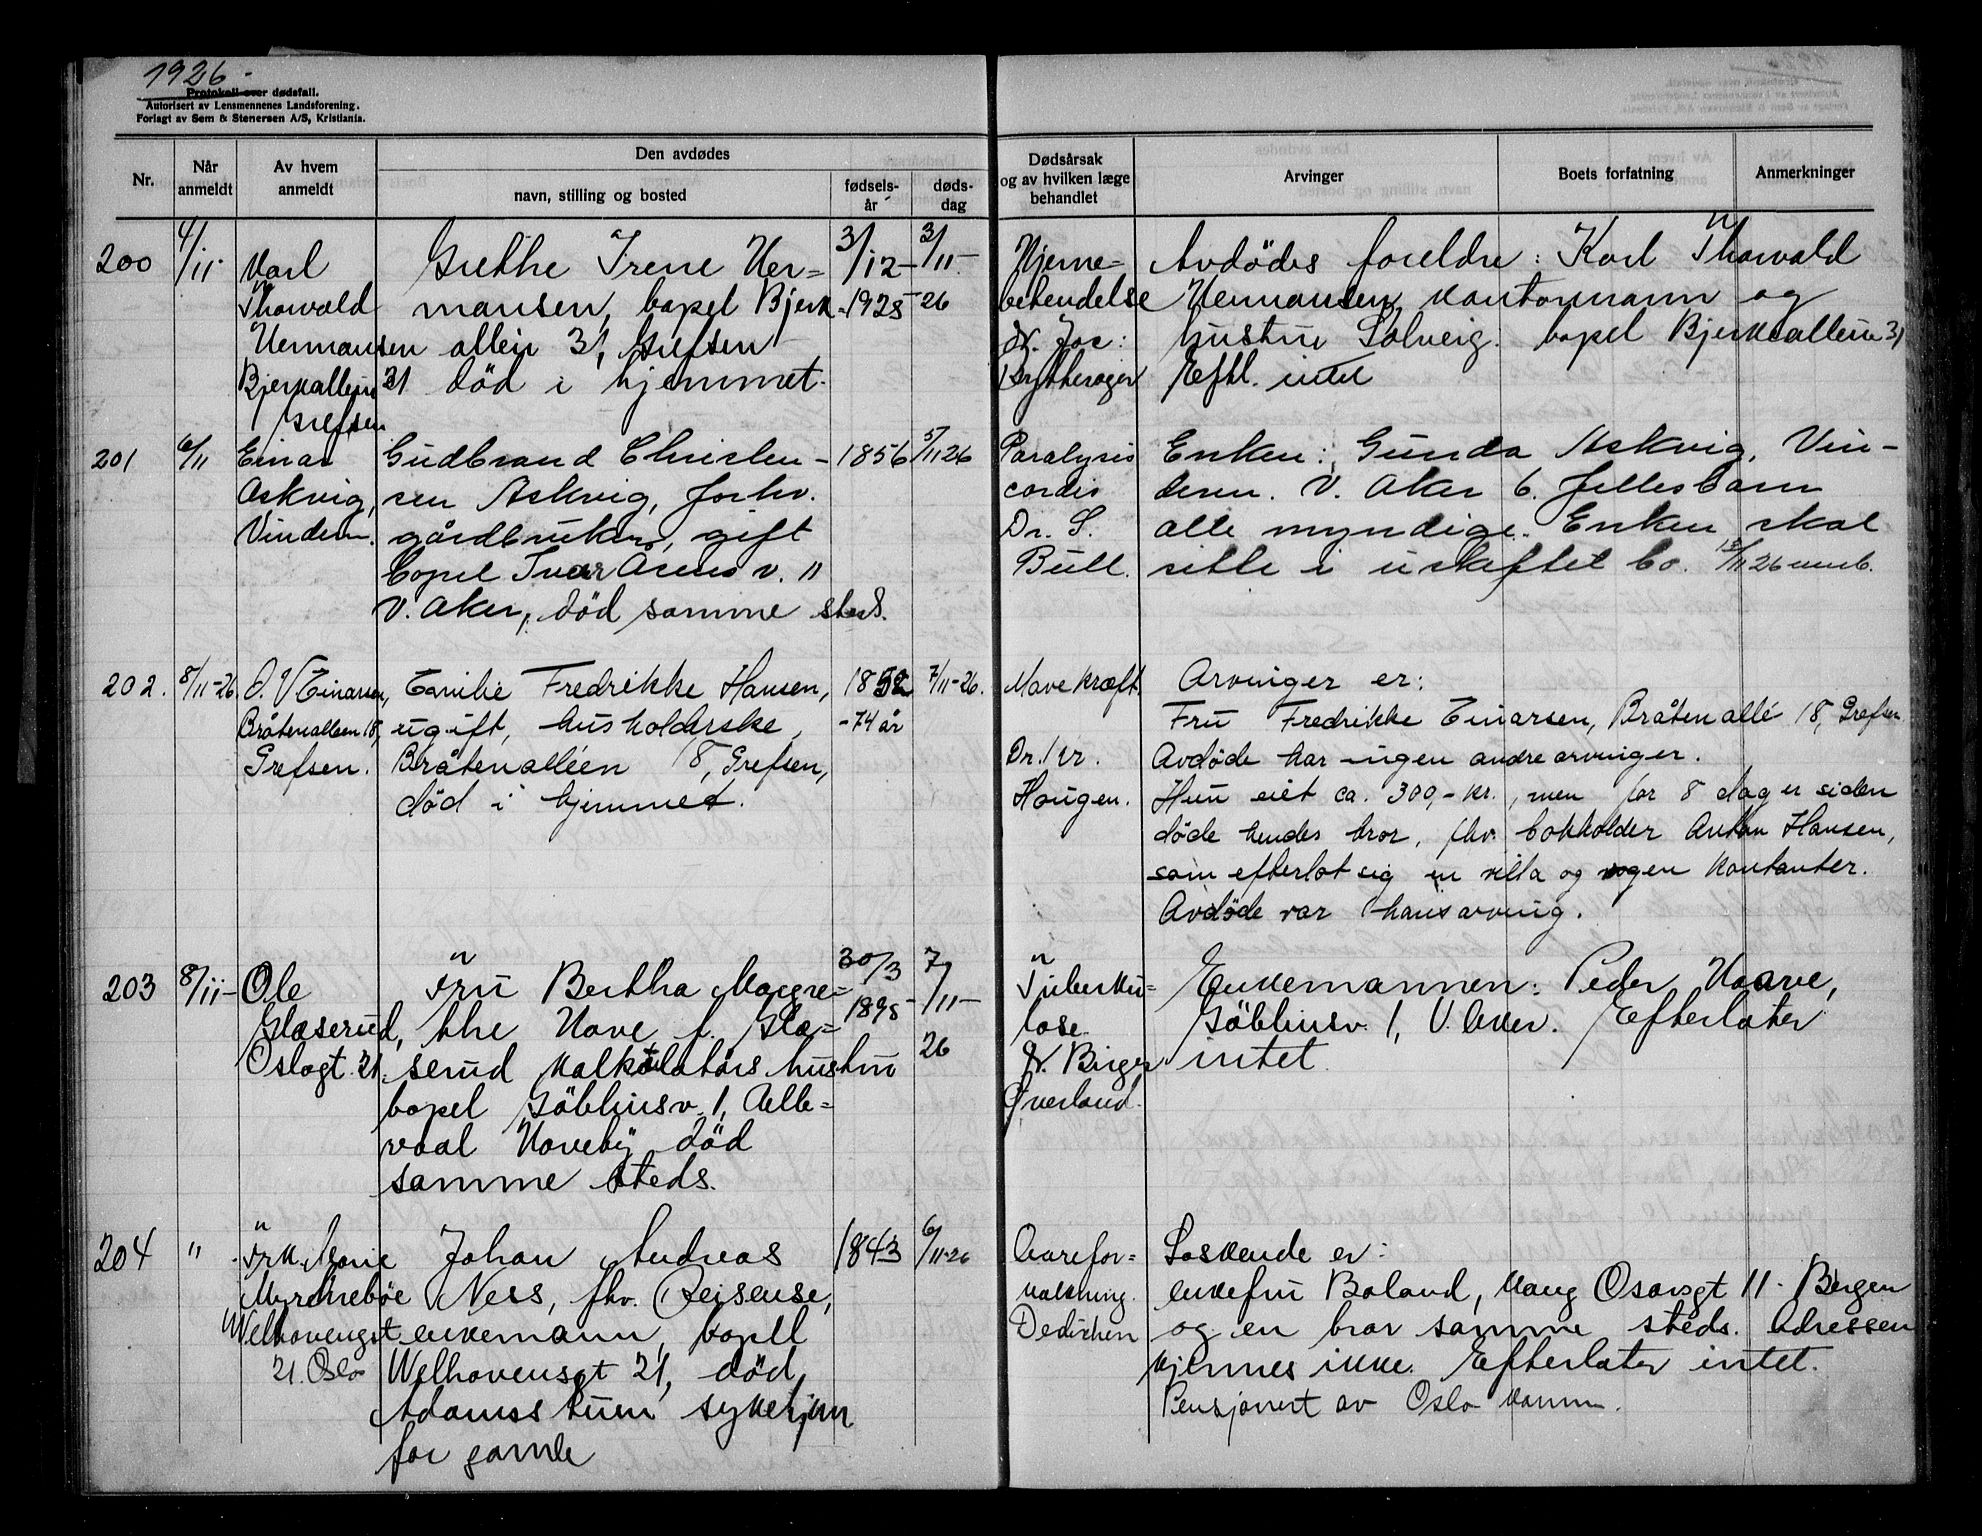 1926.-
Protokoll over dødsfall.
Autorisert av Lensmennenes Landsforening.
Forlagt av Sem & Stenersen A/S, Kristiania.
Nr.
Når anmeldt
Av hvem anmeldt
Den avdødes
navn, stilling og bosted
fødsels-år
døds-dag
Dødsårsak og av hvilken læge behandlet
Arvinger
Boets forfatning
Anmerkninger
200
4/11-
Karl
Thorvald
Hermansen
Bjerkalleen 31
Grefsen
Grethe Irene Her=
mansen, bopel Bjerk-
alleen 31, Grefsen
død i hjemmet.
3/12-
1925
3/11-
26
Hjerne=
betendelse
Dr. Jac:
Avdödes foreldre: Karl Thorvald
Hermansen, kontormann og
hustru Solveig. bopel Bjerkealleen 31
Eftl. intet
201
6/11
Einar
Askvig,
Vindern.
Gudbrand Christen-
sen Askvig, forhv.
gårdbruker, gift
bopel Ivar Åsens v. 11
V. Aker, død samme steds.
1856
5/11 26
Paralysis
cordis
Dr. S.
Bull.
Enken: Gunda Askvig, Vin-
deren. V. Aker 6. fellesbarn
alle myndige. Enken skal
sitte i uskiftet bo. 15/11 26
202.
8/11-26
O. V Einarsen,
Bråtenalleen 18,
Grefsen.
Emilie Fredrikke Hansen,
ugift, husholderske,
Bråtenalléen 18, Grefsen,
død i hjemmet.
1852
-74 år
7/11-26.
Mavekræft.
Dr. Kr.
Haugen.
Arvinger er:
Fru Fredrikke Einarsen, Bråtenallé 18, Grefsen
Avdøde har ingen andre arvinger.
Hun eiet ca. 300,- kr., men for 8 dager siden
døde hendes bror, fhv. bokholder Anton Hansen,
som efterlot sig en villa og nogen kontanter.
Avdøde var hans arving.
203
8/11-
Ole
Glaserud,
Oslogt. 21.
Fru Bertha Margre=
the Hove f. Gla=
serud kalkulatørs hustru
bopel Göbbusv. 1, Ulle=
vaal Haveby død
samme steds.
30/3
1895-
7/11-
26
Tuberku=
lose.
Dr. Birger
Øverland.
Enkemannen: Peder Haave,
Göbbusv. 1, V. Aker. Efterlater
intet.
204
"
Frk. Marie
Myrehrebøe
Welhavensgt
21. Oslo
Johan Andreas
Ness, fhv. Reisense,
enkemann, bopel
Welhavensgt 21, død
Adamsstuen sykehjem
for gamle
1843
6/11-26
Aarefor=
kalkning.
Dedichen
Søskende er:
enkefru Boland, Kong Oscarsgt 11. Bergen
og en bror samme steds. Adressen
kjennes ikke. Efterlater intet.
Pensjonert av Oslo komm.